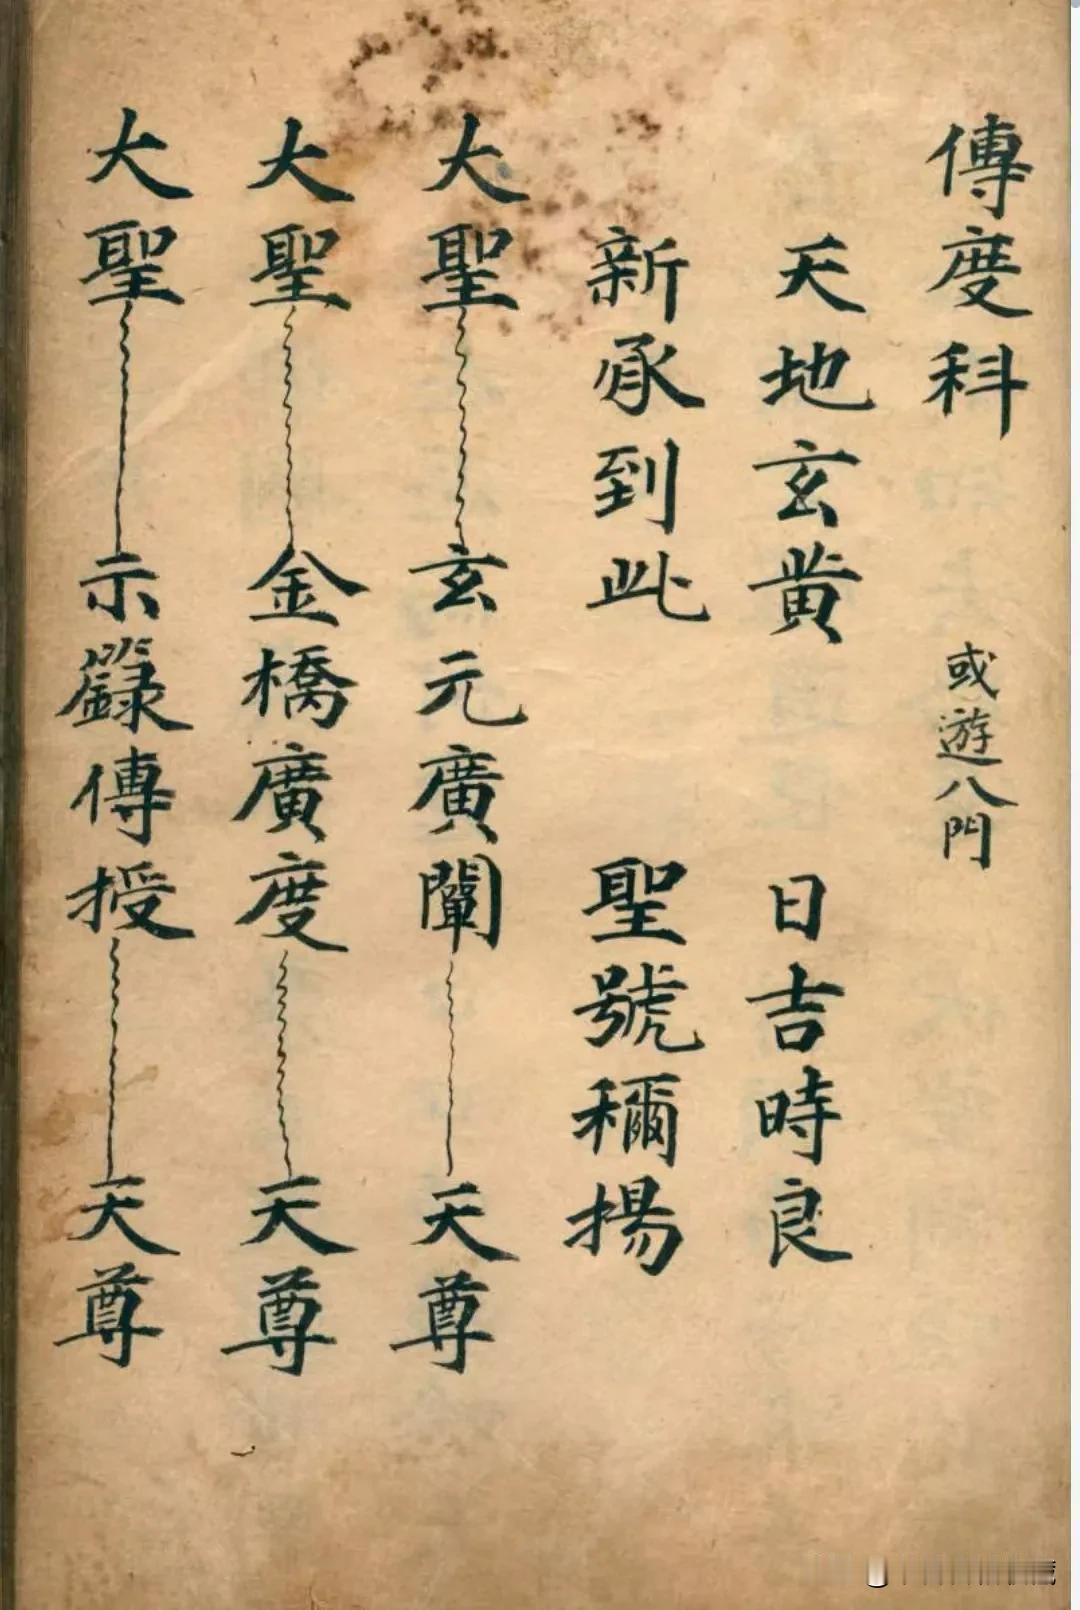 傳度科 或遊八門
天地玄黄 日吉時良
新承到此 聖號稱揚
大聖 玄元廣闡 天尊
大聖 金橋廣度 天尊
大聖 示籙傳授 天尊